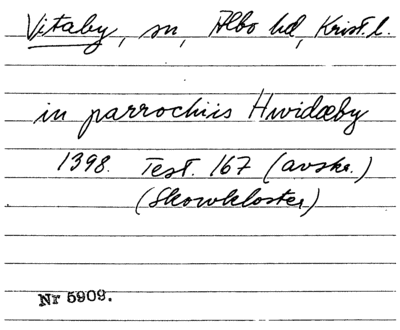 Vitaby, sn, Albo hd, Krist. l.
in parrochiis Hwidæby
1398. Test. 167 (avskr.)
(Skowkloster)
Nr 5909.